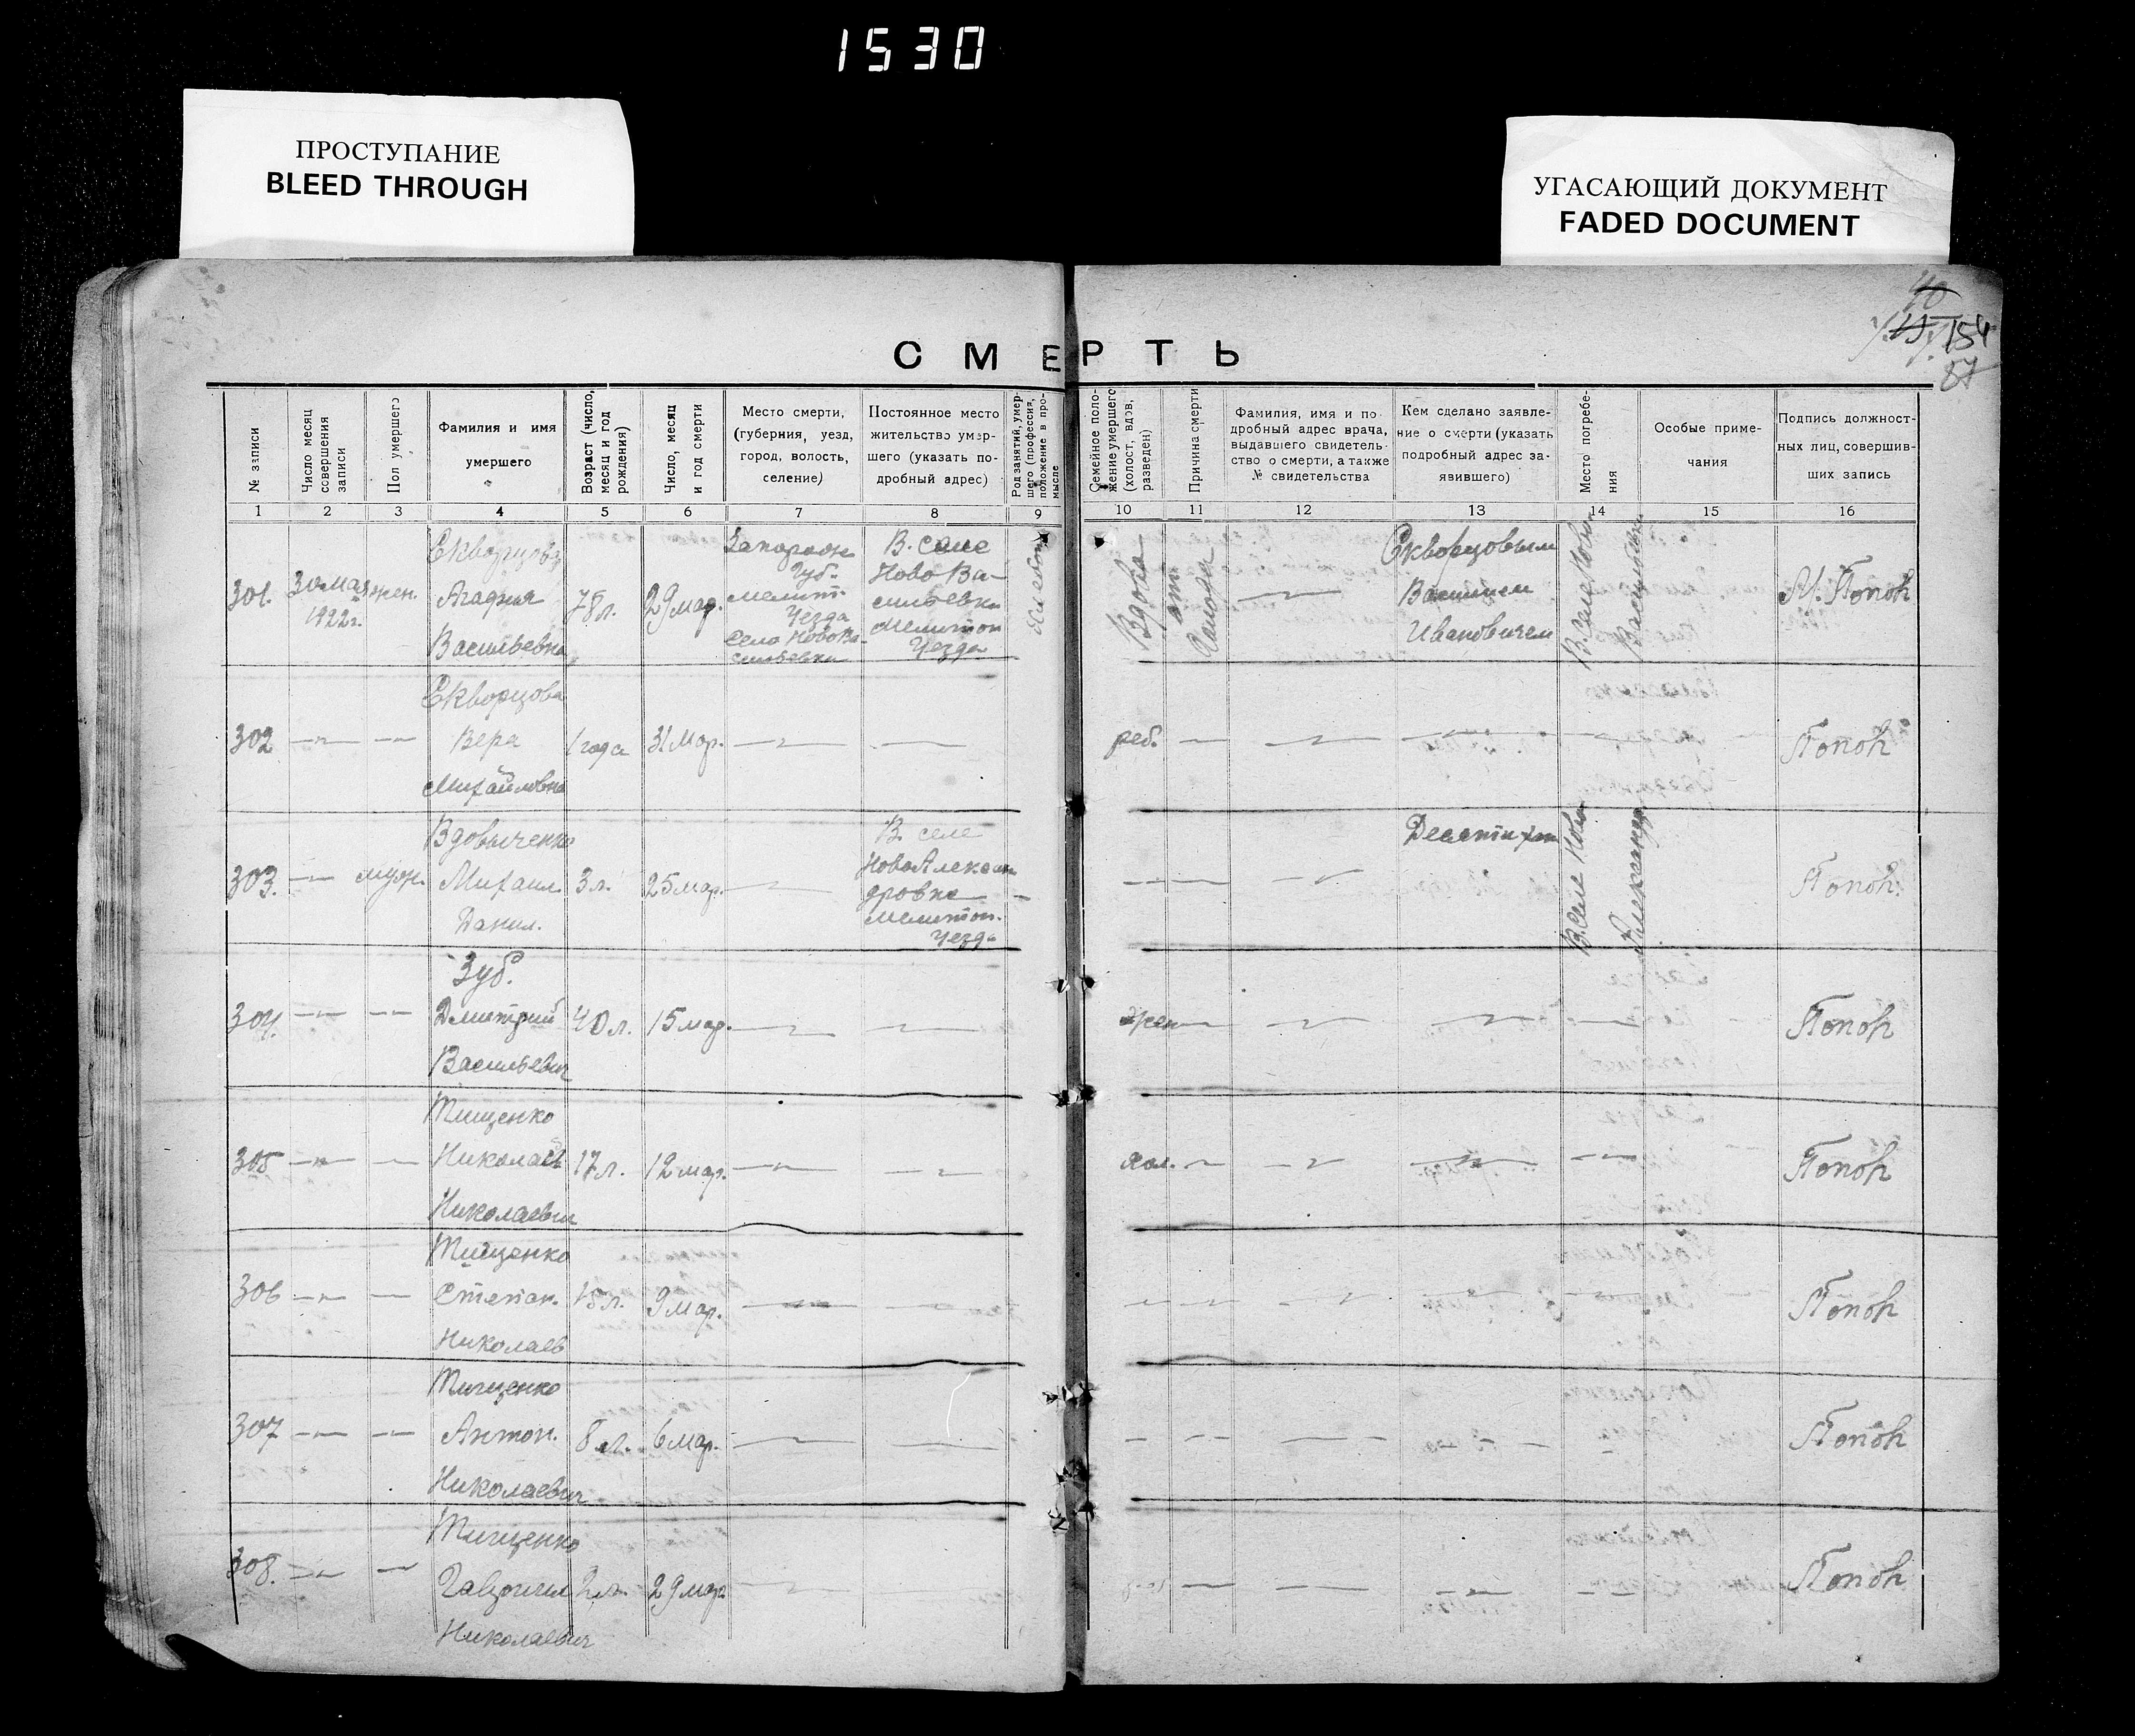 1530
ПРОСТУПАНИЕ
BLEED THROUGH
УГАСАЮЩИЙ ДОКУМЕНТ
FADED DOCUMENT
40
154
87
СМЕРТЬ
№ записи
Число месяц
совершения
записи
Пол умершего
Фамилия и имя
умершего
Возраст (число,
месяц и год
рождения)
Число, месяц
и год смерти
Место смерти,
(губерния, уезд,
город, волость,
селение)
Постоянное место
жительства умер-
шего (указать по-
дробный адрес)
Род занятий, умер-
шего (профессия,
положение в про-
мысле
Семейное поло-
жение умершего
(холост, вдов,
разведен)
Причина смерти
Фамилия, имя и по
дробный адрес врача,
выдавшего свидетель-
ство о смерти, а также
№ свидетельства
Кем сделано заявле-
ние о смерти (указать
подробный адрес за-
явившего)
Место погребе-
ния
Особые приме-
чания
Подпись должност-
ных лиц, совершив-
ших запись
1 2 3 4 5 6 7 8 9 10 11 12 13 14 15 16
301.
30 мая
1922г.
жен.
Скворцова
Агафия
Васильевна
78 л.
29 мар.
Запорож
Губ.
Мелит.
Уезда
Село НовоВа-
сильевки
В. селе
Ново Ва-
сильевки
Мелитоп
Уезда
Вдова
от
Голода
Скворцовым
Василием
Ивановичем
В. Селе Ново
Васильевки
Попов
302
— " —
— " —
Скворцова
Вера
Михайловна
1 года
31 Мар.
реб.
Попов
303.
муж.
Вдовиченко
Михаил
Данил.
3 л.
25 мар.
В. селе
НовоАлексан
дровке
Мелитоп.
Уезда
В. Селе Ново
Александр
Попов.
304.
— " —
— " —
Зуб.
Дмитрий
Васильевич
40 л.
15 мар.
жен
Попов
305
— " —
Тищенко
Николай
Николаевич
17 л.
12 мар.
хол.
Попов
306
— " —
Тищенко
Степан.
Николаев
15 л.
9 мар.
Попов
307
— " —
— " —
Тищенко
Антон.
Николаевич
8 л.
6 мар.
Попов
308.
— " —
Тищенко
Гавриил
Николаевич
2 л.
29 мар.
Попов